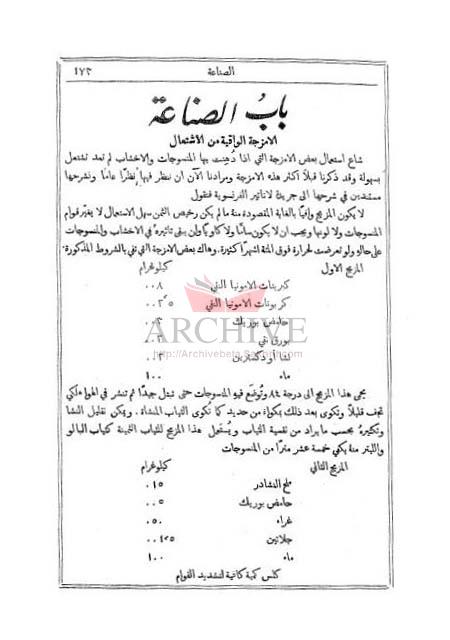 الصناعة ١٧٣
بابُ الصناعة
الامزجة الواقية من الاشتعال
شاع استعمال بعض الامزجة التي اذا دُهِنت بها المنسوجات والاخشاب لم تعد تشتعل
بسهولة وقد ذكرنا قبلاً اكثر هذه الامزجة ومرادنا الآن ان ننظر فيها نظرًا عامًا ونشرحها
مستندين في شرحها الى جرية لاناتير الفرنسوية فنقول
لا يكون المزيج وافيًا بالغاية المقصودة منهُ ما لم يكن رخيص الثمن سهل الاستعمال لا يغيّر قوام
المنسوجات ولا لونها ويجب ان لا يكون سامًا ولا كاويًا وان يبقى تاثيرهُ في الاخشاب والمنسوجات
على حالهِ ولو تعرضت لحرارة فوق المئة اشهرًا كثيرة. وهاك بعض الامزجة التي تفي بالشروط المذكورة.
المزيج الاول كيلوغرام
كبريتات الامونيا النقي ٠٠٨
كربونات الامونيا النقي ٠٠٢٫٥
حامض بوريك ٠٠٣
بورق نقي ٠٠٢
نشا او دكسترين ٠٠٢
ماء ١٠٠
ARCHIVE
http://Archivebeta.Sakhrit.com
يحمى هذا المزيج الى درجة ٨٤ وتُوضَع فيهِ المنسوجات حتى تبتل جيدًا ثم تنشر في الهواء لكي
تجف قليلاً وتكوى بعد ذلك بكواء من حديد كما تكوى الثياب المنشاة. ويمكن تقليل النشا
وتكثيرهُ بحسب ما يراد من تقسية الثياب ويُستعمل هذا المزيج للثياب الثمينة كثياب البالو
والليتر منهُ يكفي خمسة عشر مترًا من المنسوجات
المزيج الثاني كيلوغرام
ملح النشادر ٠١٥
حامض بوريك ٠٠٥
غراء ٠٥٠
جلاتين
ماء ١٠٠
كلس كمية كافية لتشديد القوام